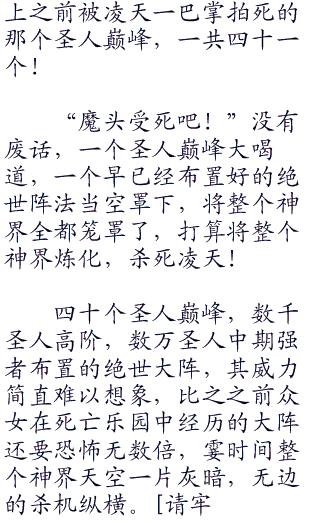 上之前被凌天一巴掌拍死的
那个圣人巅峰，一共四十一
个！
“魔头受死吧！”没有
废话，一个圣人巅峰大喝
道，一个早已经布置好的绝
世阵法当空罩下，将整个神
界全都笼罩了，打算将整个
神界炼化，杀死凌天！
四十个圣人巅峰，数千
圣人高阶，数万圣人中期强
者布置的绝世大阵，其威力
简直难以想象，比之之前众
女在死亡乐园中经历的大阵
还要恐怖无数倍，霎时间整
个神界天空一片灰暗，无边
的杀机纵横。[请牢